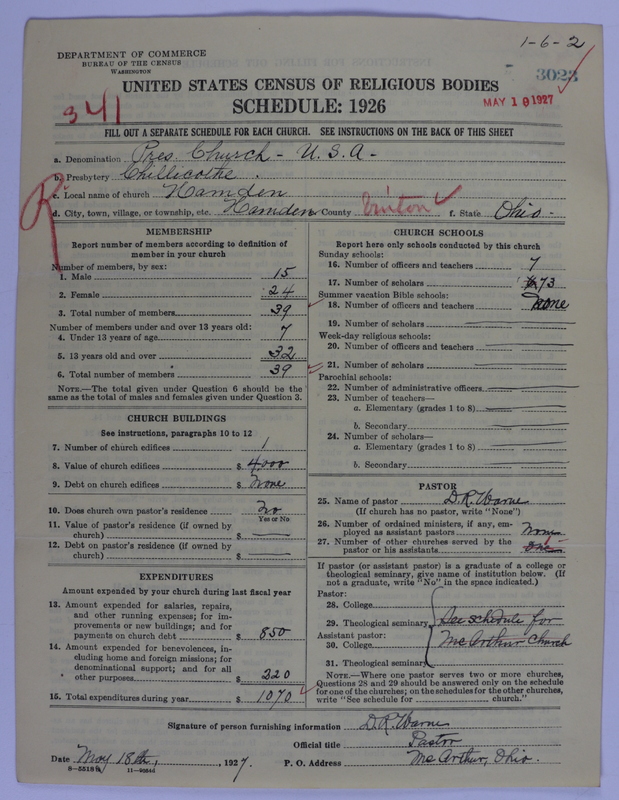 1-6-2
DEPARTMENT OF COMMERCE
BUREAU OF THE CENSUS
WASHINGTON
3023
UNITED STATES CENSUS OF RELIGIOUS BODIES
SCHEDULE: 1926
341
MAY 19 1927
FILL OUT A SEPARATE SCHEDULE FOR EACH CHURCH. SEE INSTRUCTIONS ON THE BACK OF THIS SHEET
a. Denomination Pres. Church - U.S.A-
b. Presbytery Chillicothe.
c. Local name of church Hamden
d. City, town, village, or township, etc. Hamden County Vinton f. State Ohio-
MEMBERSHIP
Report number of members according to definition of
member in your church
Number of members, by sex:
1. Male 15
2. Female 24
3. Total number of members 39
Number of members under and over 13 years old:
4. Under 13 years of age 7
5. 13 years old and over 32
6. Total number of members 39
NOTE.—The total given under Question 6 should be the
same as the total of males and females given under Question 3.
CHURCH BUILDINGS
See instructions, paragraphs 10 to 12
7. Number of church edifices 1
8. Value of church edifices $ 4000
9. Debt on church edifices $ None
10. Does church own pastor's residence? No
Yes or No
11. Value of pastor's residence (if owned by
church) $
12. Debt on pastor's residence (if owned by
church) $
EXPENDITURES
Amount expended by your church during last fiscal year
13. Amount expended for salaries, repairs,
and other running expenses; for im-
provements or new buildings; and for
payments on church debt $ 850
14. Amount expended for benevolences, in-
cluding home and foreign missions; for
denominational support; and for all
other purposes $ 220
15. Total expenditures during year $ 1070
CHURCH SCHOOLS
Report here only schools conducted by this church
Sunday schools:
16. Number of officers and teachers 7
17. Number of scholars 73
Summer vacation Bible schools:
18. Number of officers and teachers None
19. Number of scholars
Week-day religious schools:
20. Number of officers and teachers
21. Number of scholars
Parochial schools:
22. Number of administrative officers
23. Number of teachers—
a. Elementary (grades 1 to 8)
b. Secondary
24. Number of scholars—
a. Elementary (grades 1 to 8)
b. Secondary
PASTOR
25. Name of pastor D.R. Warne
(If church has no pastor, write "None")
26. Number of ordained ministers, if any, em-
ployed as assistant pastors None
27. Number of other churches served by the
pastor or his assistants one
If pastor (or assistant pastor) is a graduate of a college or
theological seminary, give name of institution below. (If
not a graduate, write "No" in the space indicated.)
Pastor:
28. College
29. Theological seminary See schedule for
Assistant pastor:
30. College McArthur Church
31. Theological seminary
NOTE.—Where one pastor serves two or more churches,
Questions 28 and 29 should be answered only on the schedule
for one of the churches; on the schedules for the other churches,
write "See schedule for church."
Signature of person furnishing information D.R. Warne
Official title Pastor
Date May 18th, , 1927. P. O. Address McArthur, Ohio.